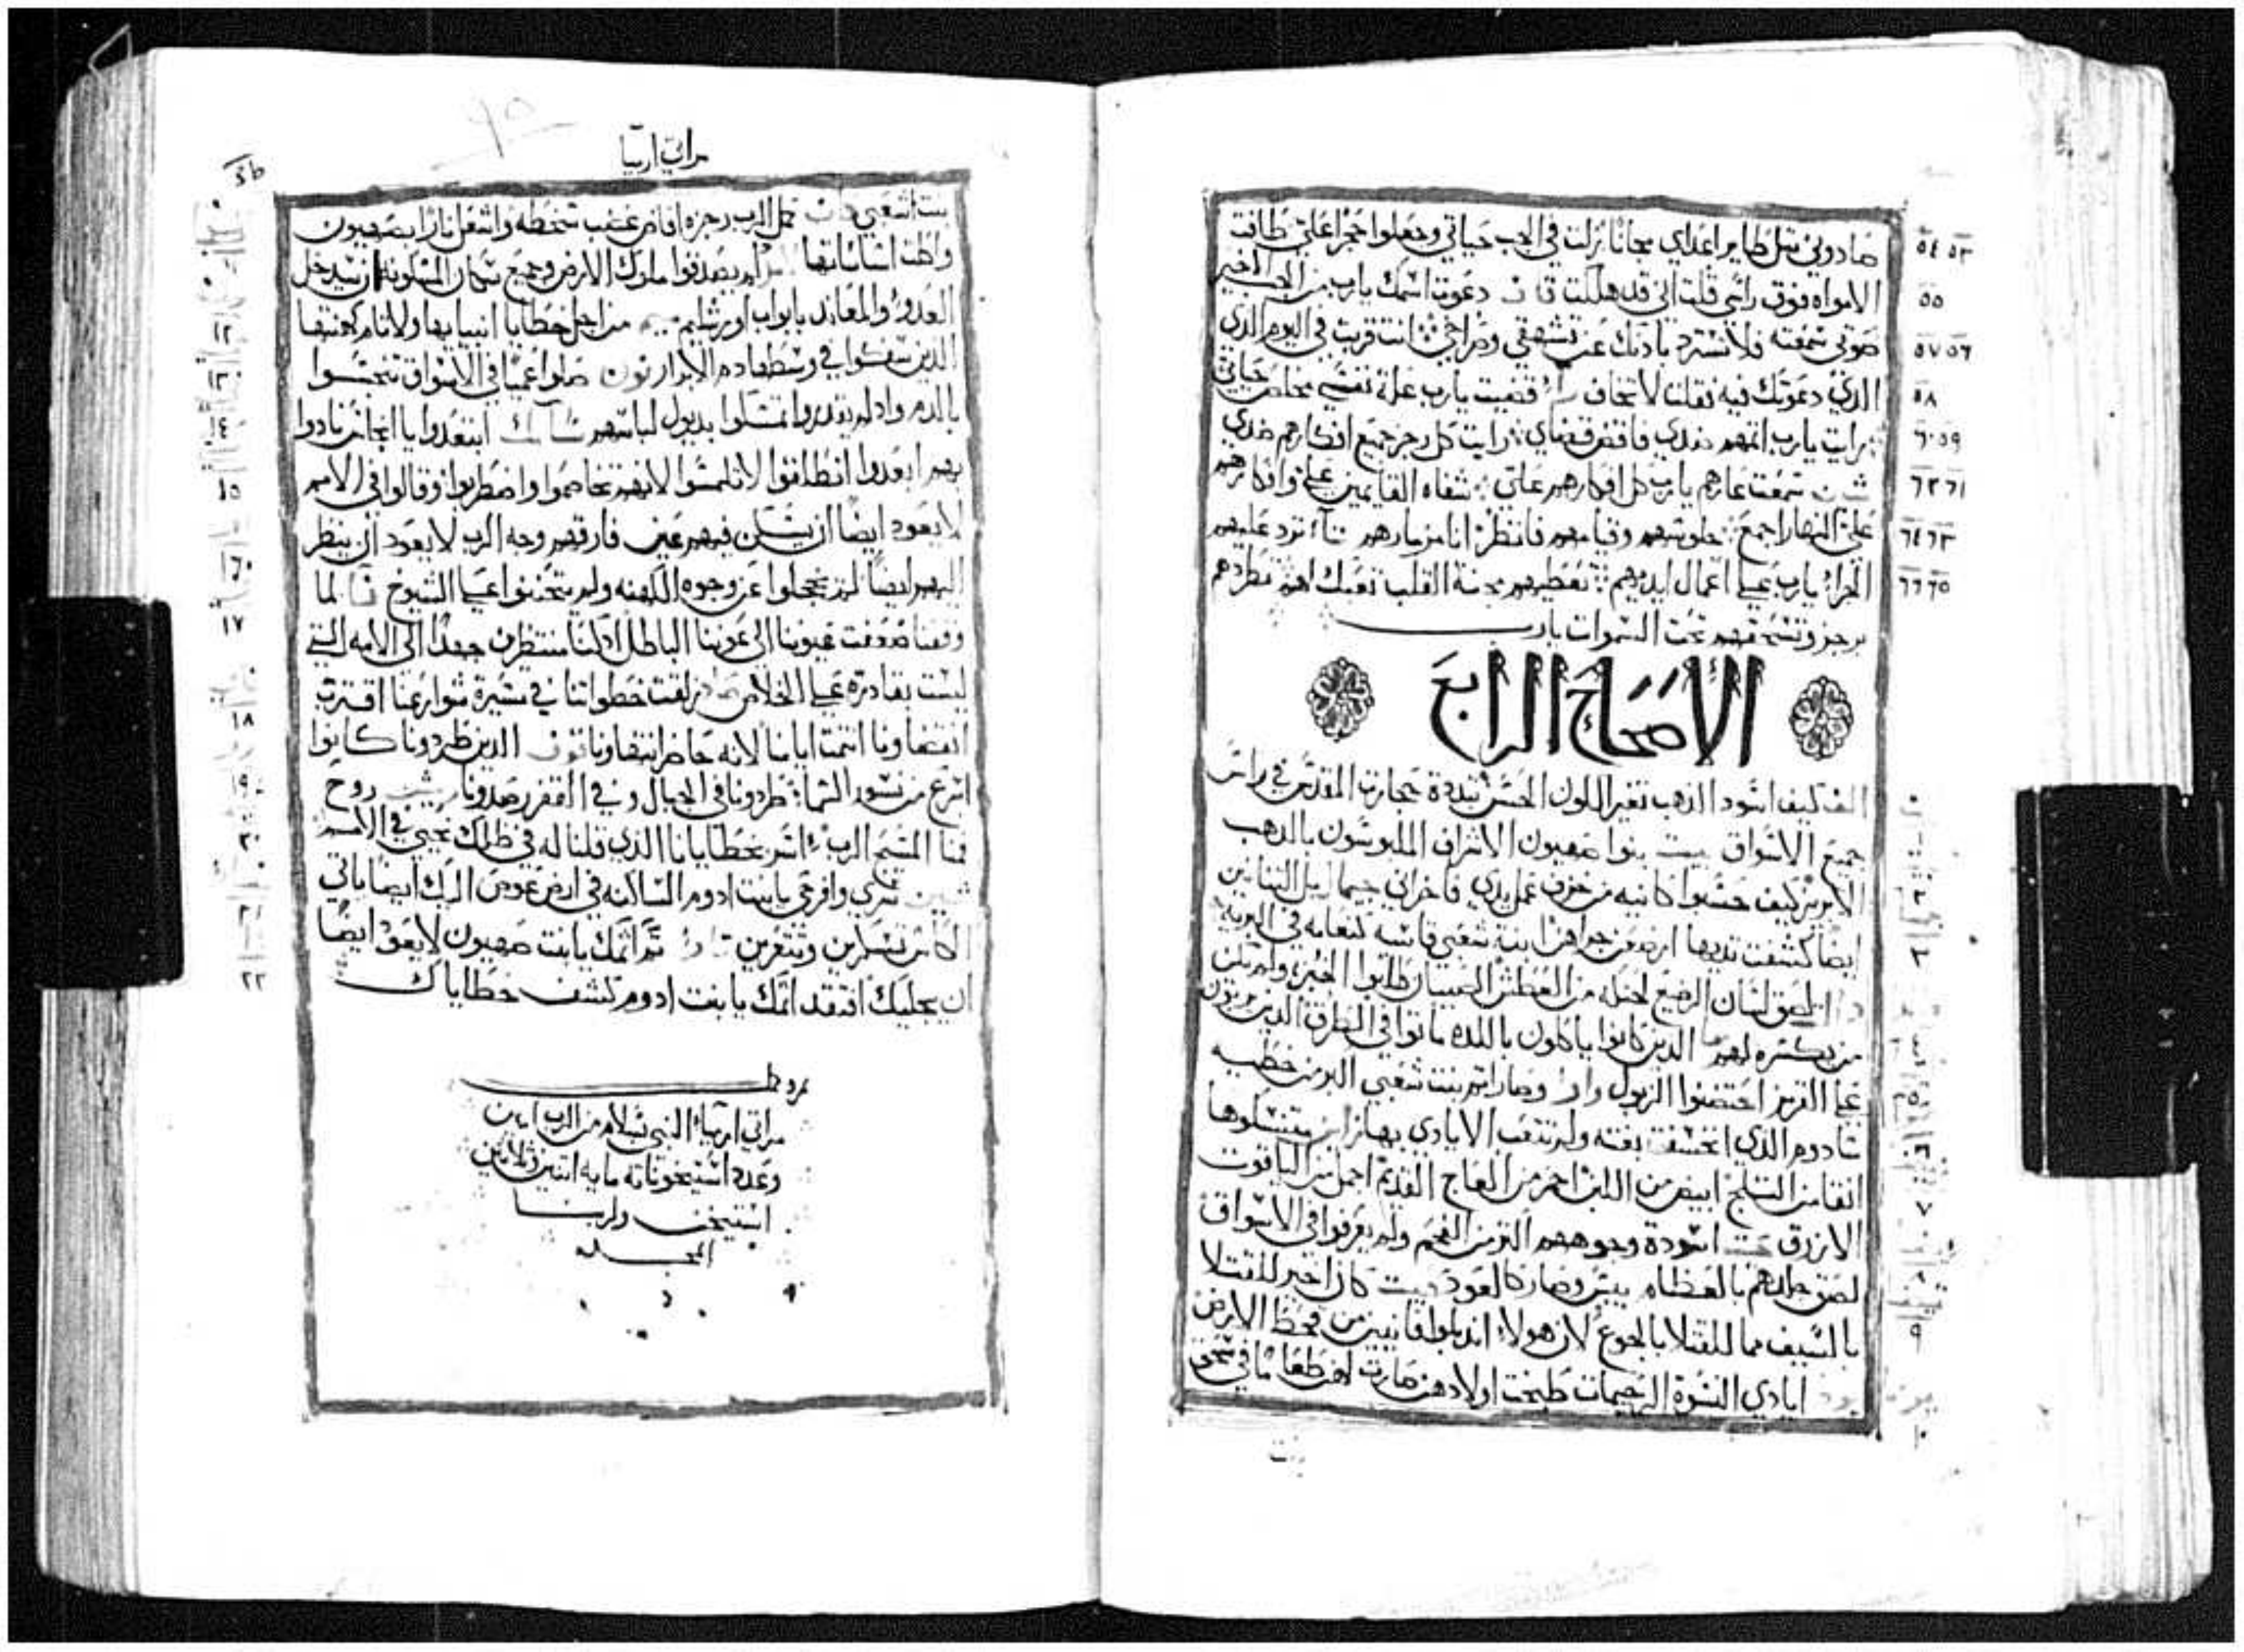 صادوني مثل طاير اعداي مجانا نزلت في الجب حياتي وجعلوا حجرا علي طافت
الامواه فوق راسي قلت اني قد هلكت قاف دعوت اسمك يارب من الجب الاخير
صوتي سمعته فلا تسترد بادنك عن تشهقي وصراخي انت قربت في اليوم الذي
الذي دعوتك فيه فقلت لا تخاف قضيت يارب علة نفسي مخلص حياتي
رايت يارب اتمهم ضدي فاقض قضاي رايت كل رجز جميع افكارهم ضدي
شين سمعت عارهم يارب كل افكارهم علي شفاه القايمين علي وافكارهم
علي النهار اجمع جلوسهم وقيامهم فانظر انا مزمارهم تاء ترد عليهم
الجزاء يارب علي اعمال ايديهم تعطيهم مجنة القلب تعبك لهم تطردهم
برجز وتسحقهم تحت السموات يارب
الاصحاح الرابع
الف كيف اسود الذهب تغير اللون الحسن تبددة حجارة المقدس في راس
جميع الاسواق بيت بنوا صهيون الاشراف الملبوسون بالذهب
الابريز كيف حسبوا كانيه من خزف عمل يدي فاخراني جيمال بل التنانين
ايضا كشفت ثديها ارضعن جراهن ابنة شعبي قاسيه كنعامه في البريه
التصق لسان الرضيع لحنكه من العطش الصبيان طلبوا الخبز ولم يكن
من يكسره لهم الذين كانوا ياكلون باللذه ماتوا في الطرق الذين يربون
علي القرمز احتضنوا الزبول واو وصار اثم بنت شعبي اكبر من خطيه
سادوم الذي انخسفت بغته ولم تتعب الايادي بها
انقا من الثلج ابيض من اللبن احمر من العاج القديم اجمل من الياقوت
الازرق اسودة وجوههم اكثر من الفحم ولم يعرفوا في الاسواق
لصق جلدهم بالعظام يبس وصار كالعود كان اخير للقتلا
بالسيف مما للقتلا بالجوع لان هولاء اندبلوا فانيين من قحط الارض
ايادي النسوة الرحيمات طبخت اولادهن صارت لهن طعاما في سحق
مراثي ارميا
بنت شعبي كاف كمل الرب رجزه افاض غضب سخطه واشعل نارا بصهيون
واكلت اساساتها لم يصدقوا ملوك الارض وجميع سكان المسكونه ان سيدخل
العدو والمعاند بابواب اورشليم ميم من اجل خطايا انبيايها ولاثام كهنتها
الذين سفكوا في وسطها دم الابرار نون ضلوا عميا في الاسواق تنجسوا
بالدم واد لم يقدروا تمسكوا بديول لباسهم ابتعدوا يا انجاس نادوا
بهم ابعدوا انطلقوا لا تلمسوا لانهم تخاصموا واضطربوا وقالوا في الامم
لا يعود ايضا ان يسكن فيهم عين فارقهم وجه الرب لا يعود ان ينظر
اليهم ايضا لم يخجلوا عن وجوه الكهنه ولم يتحننوا علي الشيوخ فا لما
وقفنا ضعفت عيوننا الي عوننا الباطل اد كنا منتظرين جيدا الي الامه التي
ليست بقادرة علي الخلاص صاد زلقت خطواتنا في مسيرة شوارعنا اقترب
انقضاونا انتمت ايامنا لانه حاضر انتهاونا قوف الذين طردونا كانوا
اسرع من نسور السما طردونا في الجبال وفي القفر رصدونا ريش روح
فمنا المسيح الرب اسر بخطايانا الذي قلنا له في ظلك نحيي في الامم
شين سري وافرحي يا بنت ادوم الساكنه في ارض عوص اليك ايضا ياتي
الكاس تسكرين وتتعرين تاو تم اثمك يا بنت صهيون لا يعود ايضا
ان يجليك افتقد اثمك يا بنت ادوم كشف خطاياك
مراثي ارمياء النبي بسلام من الرب امين
وعدد استيخوناته مايه اتنين وثلاثين
استيخن ولربنا
المجد